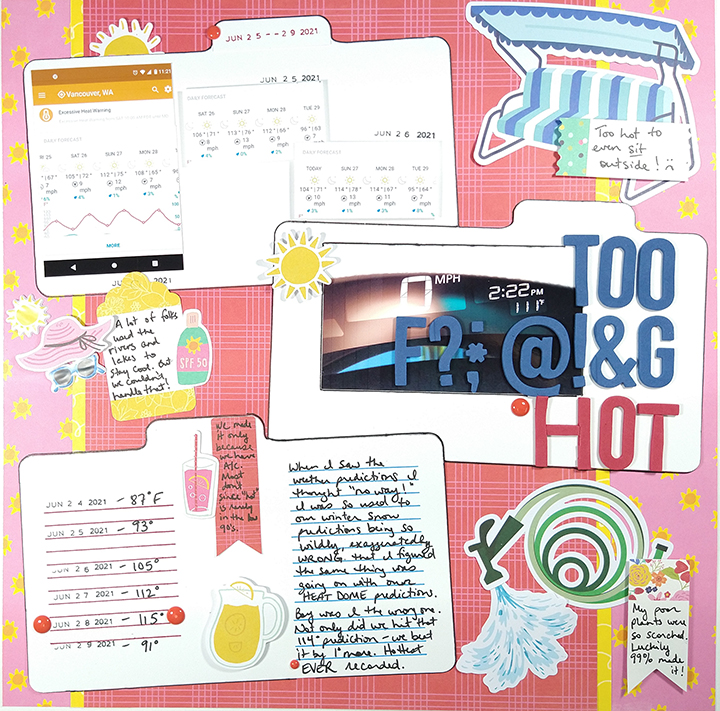 JUN 25 -- 29 2021
11:21
Vancouver, WA
Excessive Heat Warning
DAILY FORECAST
SAT 26 SUN 27 MON 28
105° 72° 112° 75° 114° 76°
9 mph 12 mph 10 mph
MORE
JUN 25 2021
DAILY FORECAST
SAT 26 SUN 27 MON 28 TUE 29
106° 71° 113° 76° 112° 66° 96° 63°
JUN 26 2021
DAILY FORECAST
TODAY SUN 27 MON 28 TUE 29
104° 71° 114° 78° 114° 67° 95° 64°
Too hot to
even sit
outside! :(
0 MPH
2:22 PM
111°F
TOO
F?;*@!&G
HOT
A lot of folks
used the
rivers and
lakes to
stay cool. But
we couldn't
handle that!
SPF 50
We made
it only
because
we have
A/C.
Most
don't
since "hot"
is rarely
in the low
90's.
JUN 24 2021 - 87°F
JUN 25 2021 - 93°
JUN 26 2021 - 105°
JUN 27 2021 - 112°
JUN 28 2021 - 115°
JUN 29 2021 - 91°
When I saw the
weather predictions I
thought "no way!"
I was so used to
our winter snow
predictions being so
wildly exaggerated/
WRONG, that I figured
the same thing was
going on with our
HEAT DOME prediction.
Boy was I the wrong one.
Not only did we hit that
114° prediction - we beat
it by 1° more. Hottest
EVER recorded.
My poor
plants were
so scorched.
Luckily
99% made
it!